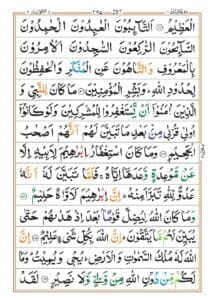 الْعَظِيْمُ ۝ اَلتَّآئِبُوْنَ الْعٰبِدُوْنَ الْحٰمِدُوْنَ
السَّآئِحُوْنَ الرّٰكِعُوْنَ السّٰجِدُوْنَ الْاٰمِرُوْنَ
بِالْمَعْرُوْفِ وَالنَّاهُوْنَ عَنِ الْمُنْكَرِ وَالْحٰفِظُوْنَ
لِحُدُوْدِ اللّٰهِ ؕ وَبَشِّرِ الْمُؤْمِنِيْنَ ۝ مَا كَانَ لِلنَّبِيِّ وَ
الَّذِيْنَ اٰمَنُوْۤا اَنْ يَّسْتَغْفِرُوْا لِلْمُشْرِكِيْنَ وَلَوْ كَانُوْۤا
اُولِيْ قُرْبٰى مِنْۢ بَعْدِ مَا تَبَيَّنَ لَهُمْ اَنَّهُمْ اَصْحٰبُ
الْجَحِيْمِ ۝ وَمَا كَانَ اسْتِغْفَارُ اِبْرٰهِيْمَ لِاَبِيْهِ اِلَّا
عَنْ مَّوْعِدَةٍ وَّعَدَهَاۤ اِيَّاهُ ۚ فَلَمَّا تَبَيَّنَ لَهٗۤ اَنَّهٗ
عَدُوٌّ لِّلّٰهِ تَبَرَّاَ مِنْهُ ؕ اِنَّ اِبْرٰهِيْمَ لَاَوَّاهٌ حَلِيْمٌ ۝
وَمَا كَانَ اللّٰهُ لِيُضِلَّ قَوْمًۢا بَعْدَ اِذْ هَدٰىهُمْ حَتّٰى
يُبَيِّنَ لَهُمْ مَّا يَتَّقُوْنَ ؕ اِنَّ اللّٰهَ بِكُلِّ شَيْءٍ عَلِيْمٌ ۝ اِنَّ
اللّٰهَ لَهٗ مُلْكُ السَّمٰوٰتِ وَالْاَرْضِ ؕ يُحْيٖ وَيُمِيْتُ ؕ وَمَا
لَكُمْ مِّنْ دُوْنِ اللّٰهِ مِنْ وَّلِيٍّ وَّلَا نَصِيْرٍ ۝ لَقَدْ